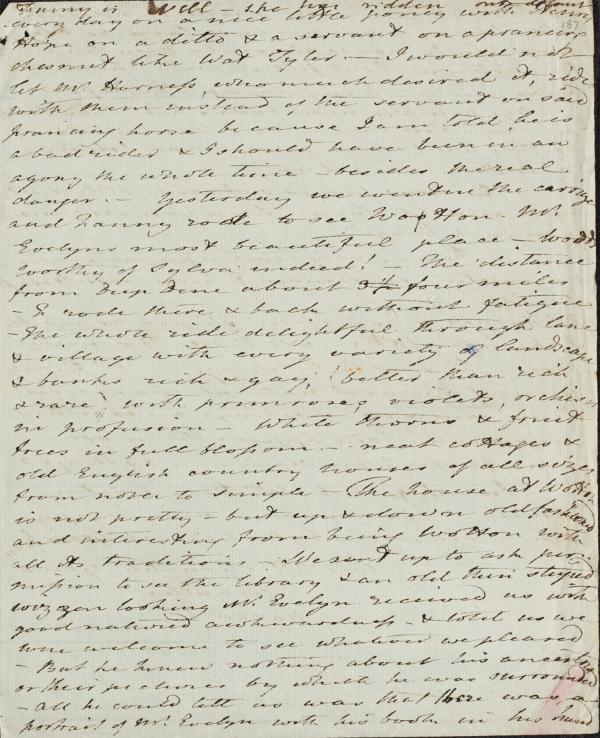 Fanny is well – she has ridden out almost
every day on a nice little poney with Henry
187
Hope on a ditto & a servant on a prancing
chesnut like Wat Tyler – I would not
let Mr. Harness, who much desired it, ride
with them instead of the servant on said
prancing horse because I am told he is
a bad rider & I should have been in an
agony the whole time – besides the real
danger. – Yesterday we went in the carriage
and Fanny rode to see Wotton Mr.
Evelyns most beautiful place – woods
worthy of Sylva indeed! – The distance
from Deep Dene about four miles
– F rode there & back without fatigue
– The whole ride delightful through lane
& village with every variety of landscape
& banks rich & gay, "better than rich
& rare" with primroses, violets, orchises
in profusion – White thorns & fruit
trees in full blossom – neat cottages &
old English country houses of all sizes
from noble to simple – The house at Wotton
is not pretty – but up & down old fashioned
and interesting from being Wotton with
all its traditions – We sent up to ask per-
mission to see the library & an old thin stupid
looking Mr. Evelyn received us with
good natured awkwardness – & told us we
were welcome to see whatever we pleased
– But he knew nothing about his ancestors
or their pictures by which he was surrounded
– all he could tell us was that there was a
portrait of Mr. Evelyn with his book in his hand